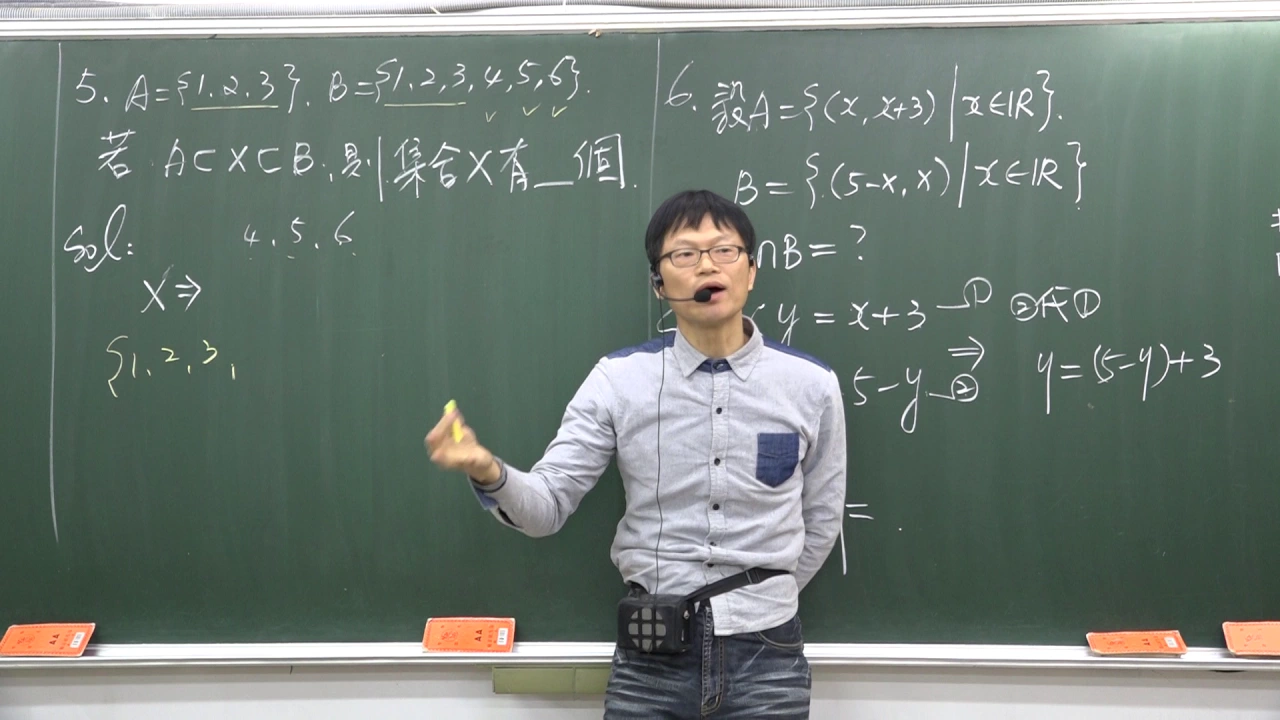 5. A={1,2,3}. B={1,2,3,4,5,6}.
若 A⊂X⊂B, 則集合X有__個.
Sol:
4.5.6
X⇒
{1,2,3,
6. 設A={(x,x+3)|x∈R}.
B={(5-x,x)|x∈R}
∩B=?
y=x+3—① ②代①
5-y—② ⇒ y=(5-y)+3
= .